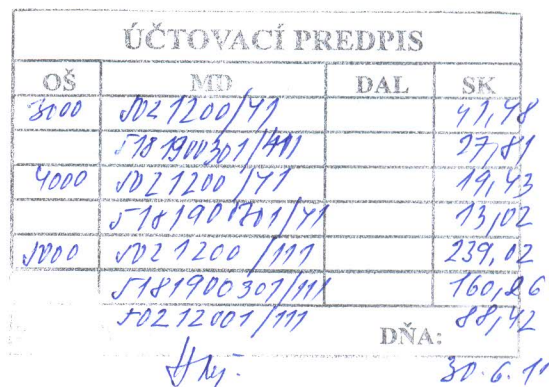 ÚČTOVACÍ PREDPIS
OŠ MD DAL SK
3100 5021200/41 41,48
5181900301/41 27,81
4000 5021200/41 19,43
518190 0301/41 13,02
5000 5021200/111 239,02
5181900301/111 160,26
50212001/111 88,42
DŇA:
30.6.11